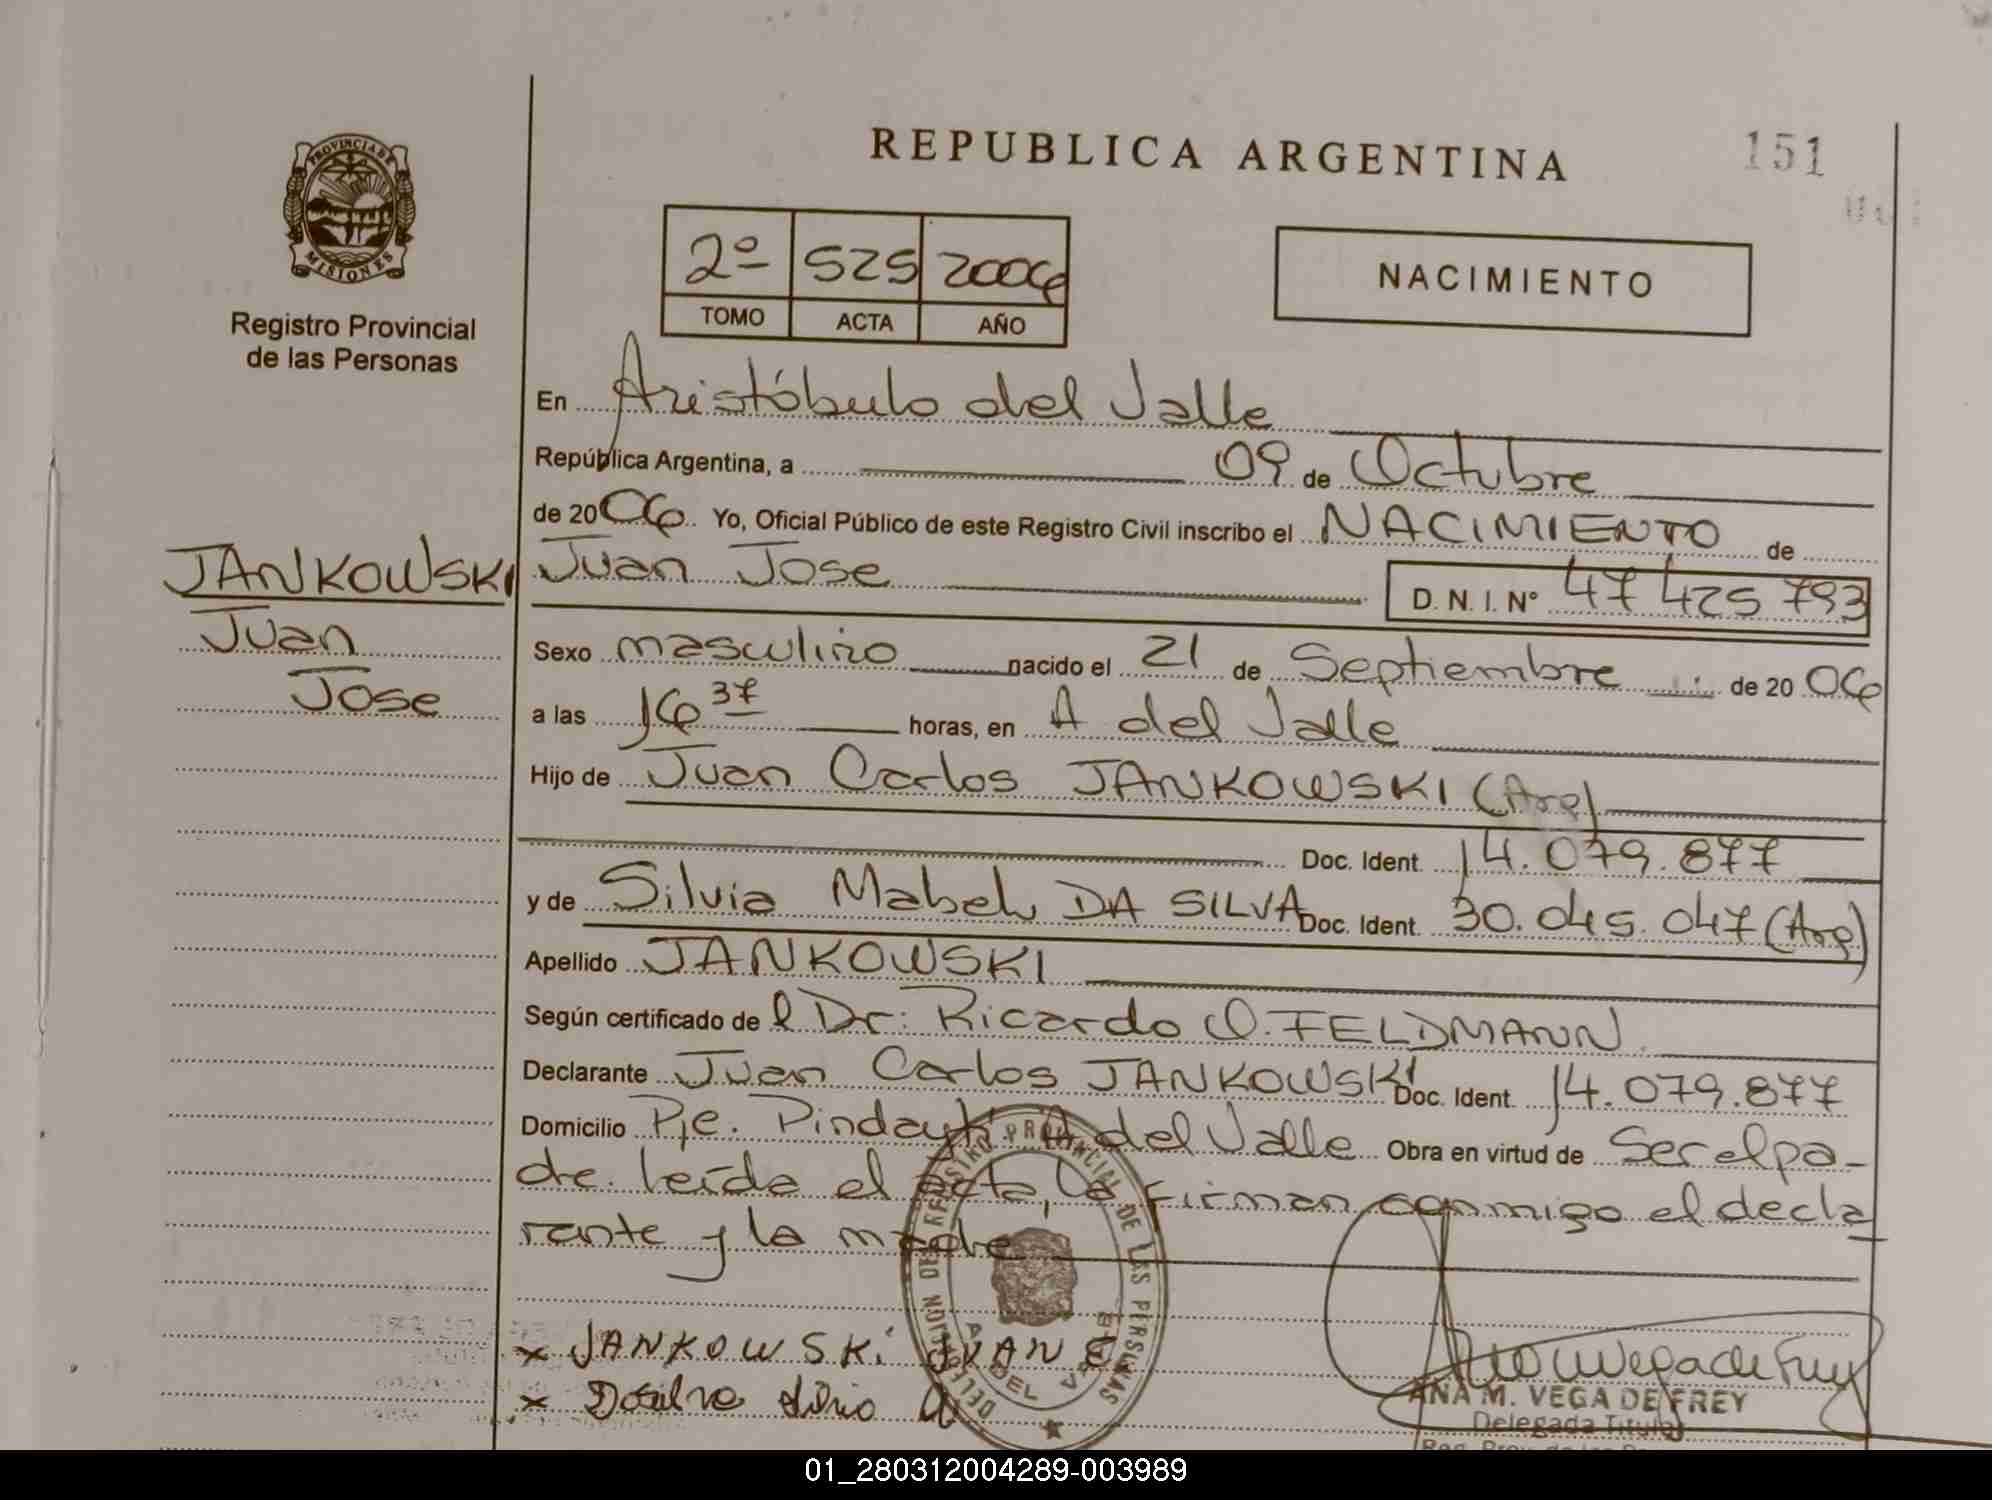 REPUBLICA ARGENTINA
151
PROVINCIA DE
MISIONES
Registro Provincial
de las Personas
2º 525 2006
TOMO ACTA AÑO
NACIMIENTO
En Aristóbulo del Valle
República Argentina, a 09 de Octubre
de 2006 Yo, Oficial Público de este Registro Civil inscribo el NACIMIENTO de
JANKOWSKI
Juan
Jose
Juan Jose D. N. I. Nº 47 425 793
Sexo masculino nacido el 21 de Septiembre de 2006
a las 16 37 horas, en A del Valle
Hijo de Juan Carlos JANKOWSKI (Arg)
Doc. Ident. 14.079.877
y de Silvia Mabel DA SILVA Doc. Ident. 30.045.047 (Arg)
Apellido JANKOWSKI
Según certificado de l Dr. Ricardo O. FELDMANN
Declarante Juan Carlos JANKOWSKI Doc. Ident. 14.079.877
Domicilio Pje. Pindayti A del Valle Obra en virtud de Ser el pa-
dre. leída el acta, la firman conmigo el decla
rante y la madre
x JANKOWSKI JUAN C
x Dasilva
DELEGACION DEL REGISTRO PROVINCIAL DE LAS PERSONAS
A. DEL VALLE
ANA M. VEGA DE FREY
Delegada Titular
01_280312004289-003989